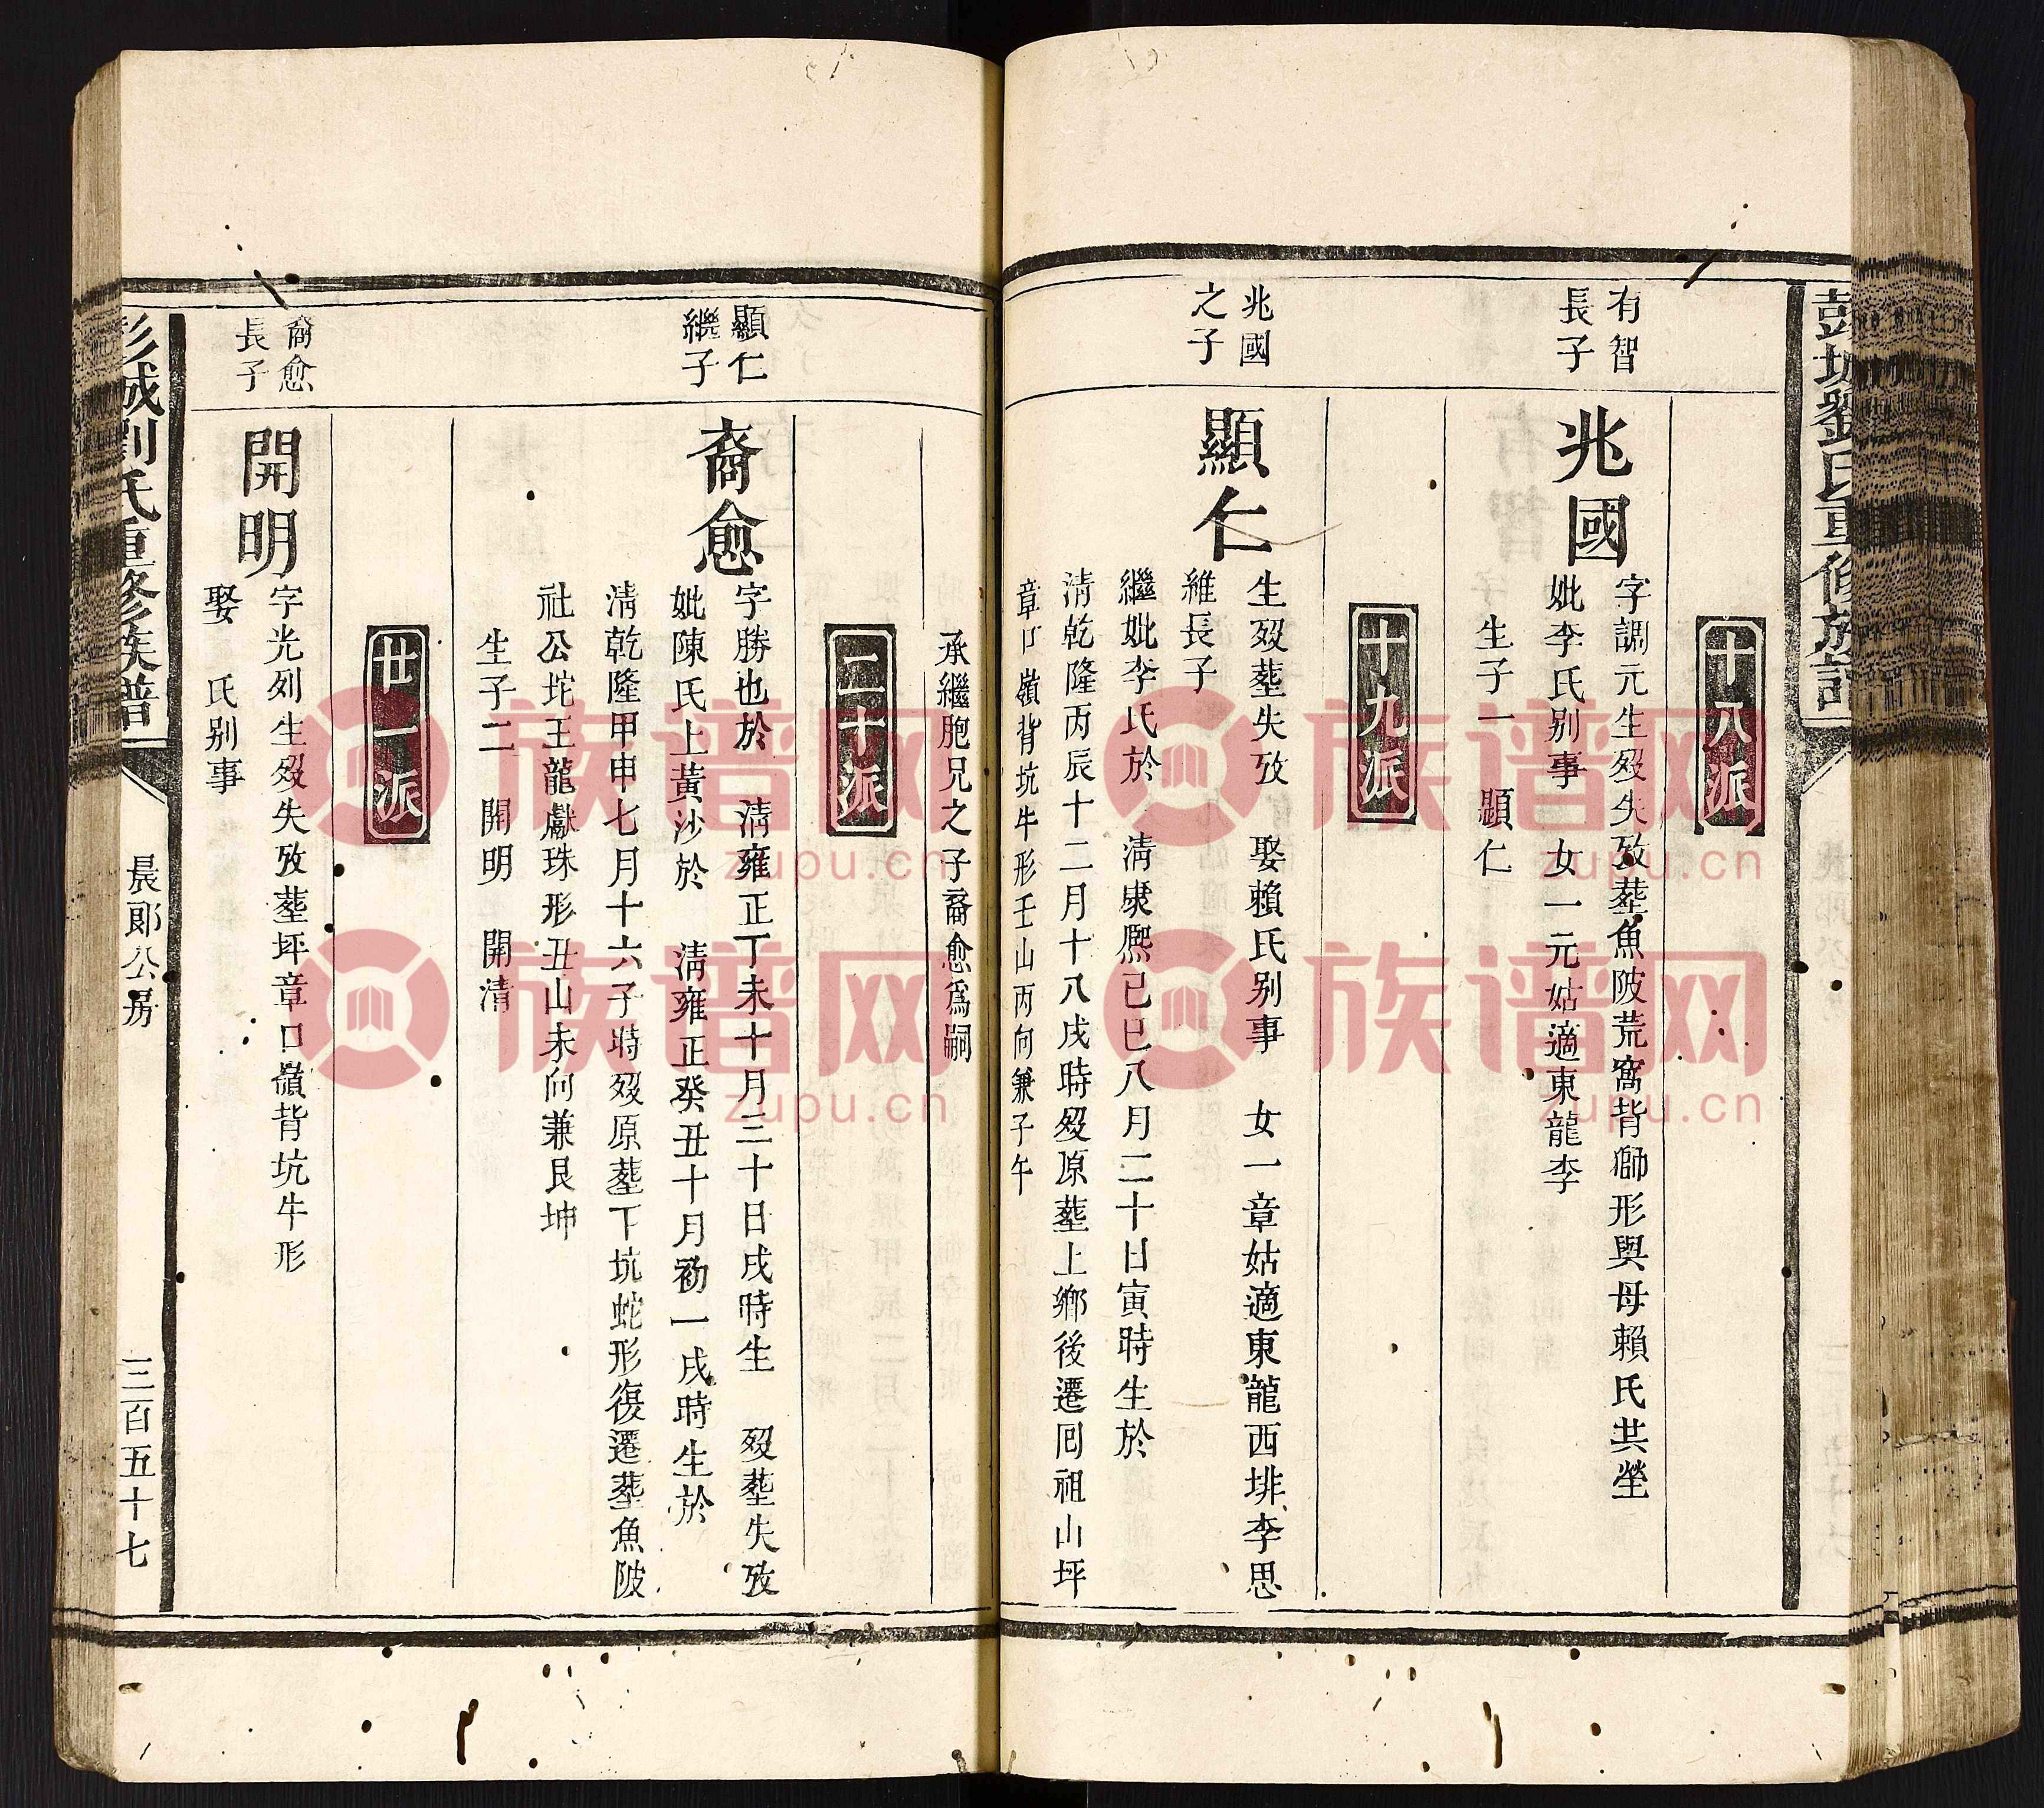 彭城劉氏重修族譜
十八派
有智
長子
兆國
字調元生歿失攷塟魚陂荒窩背獅形與母賴氏共塋
妣李氏别事 女一元姑適東龍李
生子一 顯仁
十九派
兆國
之子
顯仁
生歿塟失攷 娶賴氏别事 女一章姑適東龍西排李思
維長子
繼妣李氏於 清康熈己巳八月二十日寅時生於
清乾隆丙辰十二月十八戌時歿原塟上鄉後遷囘祖山坪
章口嶺背坑牛形壬山丙向兼子午
承繼胞兄之子裔愈爲嗣
二十派
顯仁
繼子
裔愈
字勝也於 清雍正丁未十月三十日戌時生 歿塟失攷
妣陳氏上黃沙於 清雍正癸丑十月初一戌時生於
清乾隆甲申七月十六子時歿原塟下坑蛇形復遷塟魚陂
社公垞王龍獻珠形丑山未向兼艮坤
生子二 開明 開清
廿一派
裔愈
長子
開明
字光列生歿失攷塟坪章口嶺背坑牛形
娶 氏别事
彭城劉氏重修族譜
長郎公房
三百五十七
族谱网
zupu.cn
族谱网
zupu.cn
族谱网
zupu.cn
族谱网
zupu.cn